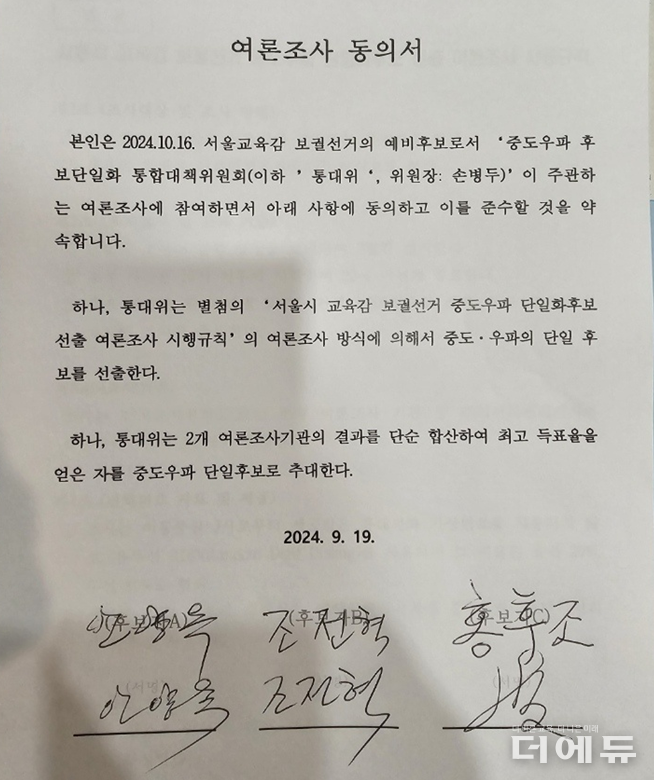 여론조사 동의서
본인은 2024.10.16. 서울교육감 보궐선거의 예비후보로서 ‘중도우파 후
보단일화 통합대책위원회(이하 ’ 통대위 ‘, 위원장: 손병두)’ 이 주관하
는 여론조사에 참여하면서 아래 사항에 동의하고 이를 준수할 것을 약
속합니다.
하나, 통대위는 별첨의 ‘서울시 교육감 보궐선거 중도우파 단일화후보
선출 여론조사 시행규칙’ 의 여론조사 방식에 의해서 중도·우파의 단일 후
보를 선출한다.
하나, 통대위는 2개 여론조사기관의 결과를 단순 합산하여 최고 득표율을
얻은 자를 중도우파 단일후보로 추대한다.
2024. 9. 19.
(후보자A) (후보자B) (후보자C)
안양옥 조전혁 홍후조
안양옥 조전혁
더에듀